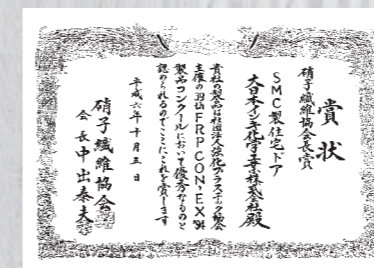 賞状
硝子繊維協会長賞
SMC製住宅ドア
大日本インキ化学工業株式会社殿
貴社の製品は社団法人強化プラスチック協会
主催の羽仙FRPCON,EX'94
製品コンクールにおいて優秀なるものと
認められるのでここにこれを賞します
平成六年十月五日
硝子繊維協会
会長中出泰夫